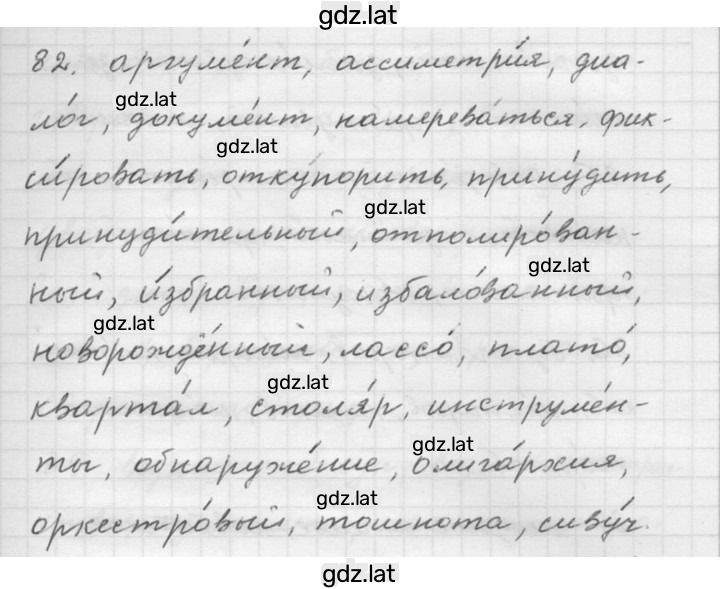 gdz.lat
82. аргуме́нт, ассиметри́я, диа-
gdz.lat
ло́г, докуме́нт, намерева́ться, фик-
gdz.lat
си́ровать, отку́порить, прину́дить,
gdz.lat
принуди́тельный, отполиро́ван-
gdz.lat
ный, и́збранный, избало́ванный,
gdz.lat
новорождённый, лассо́, плато́,
gdz.lat
кварта́л, столя́р, инструме́н-
gdz.lat
ты, обнаруже́ние, олига́рхия,
gdz.lat
оркестро́вый, тошнота, сиву́ч.
gdz.lat